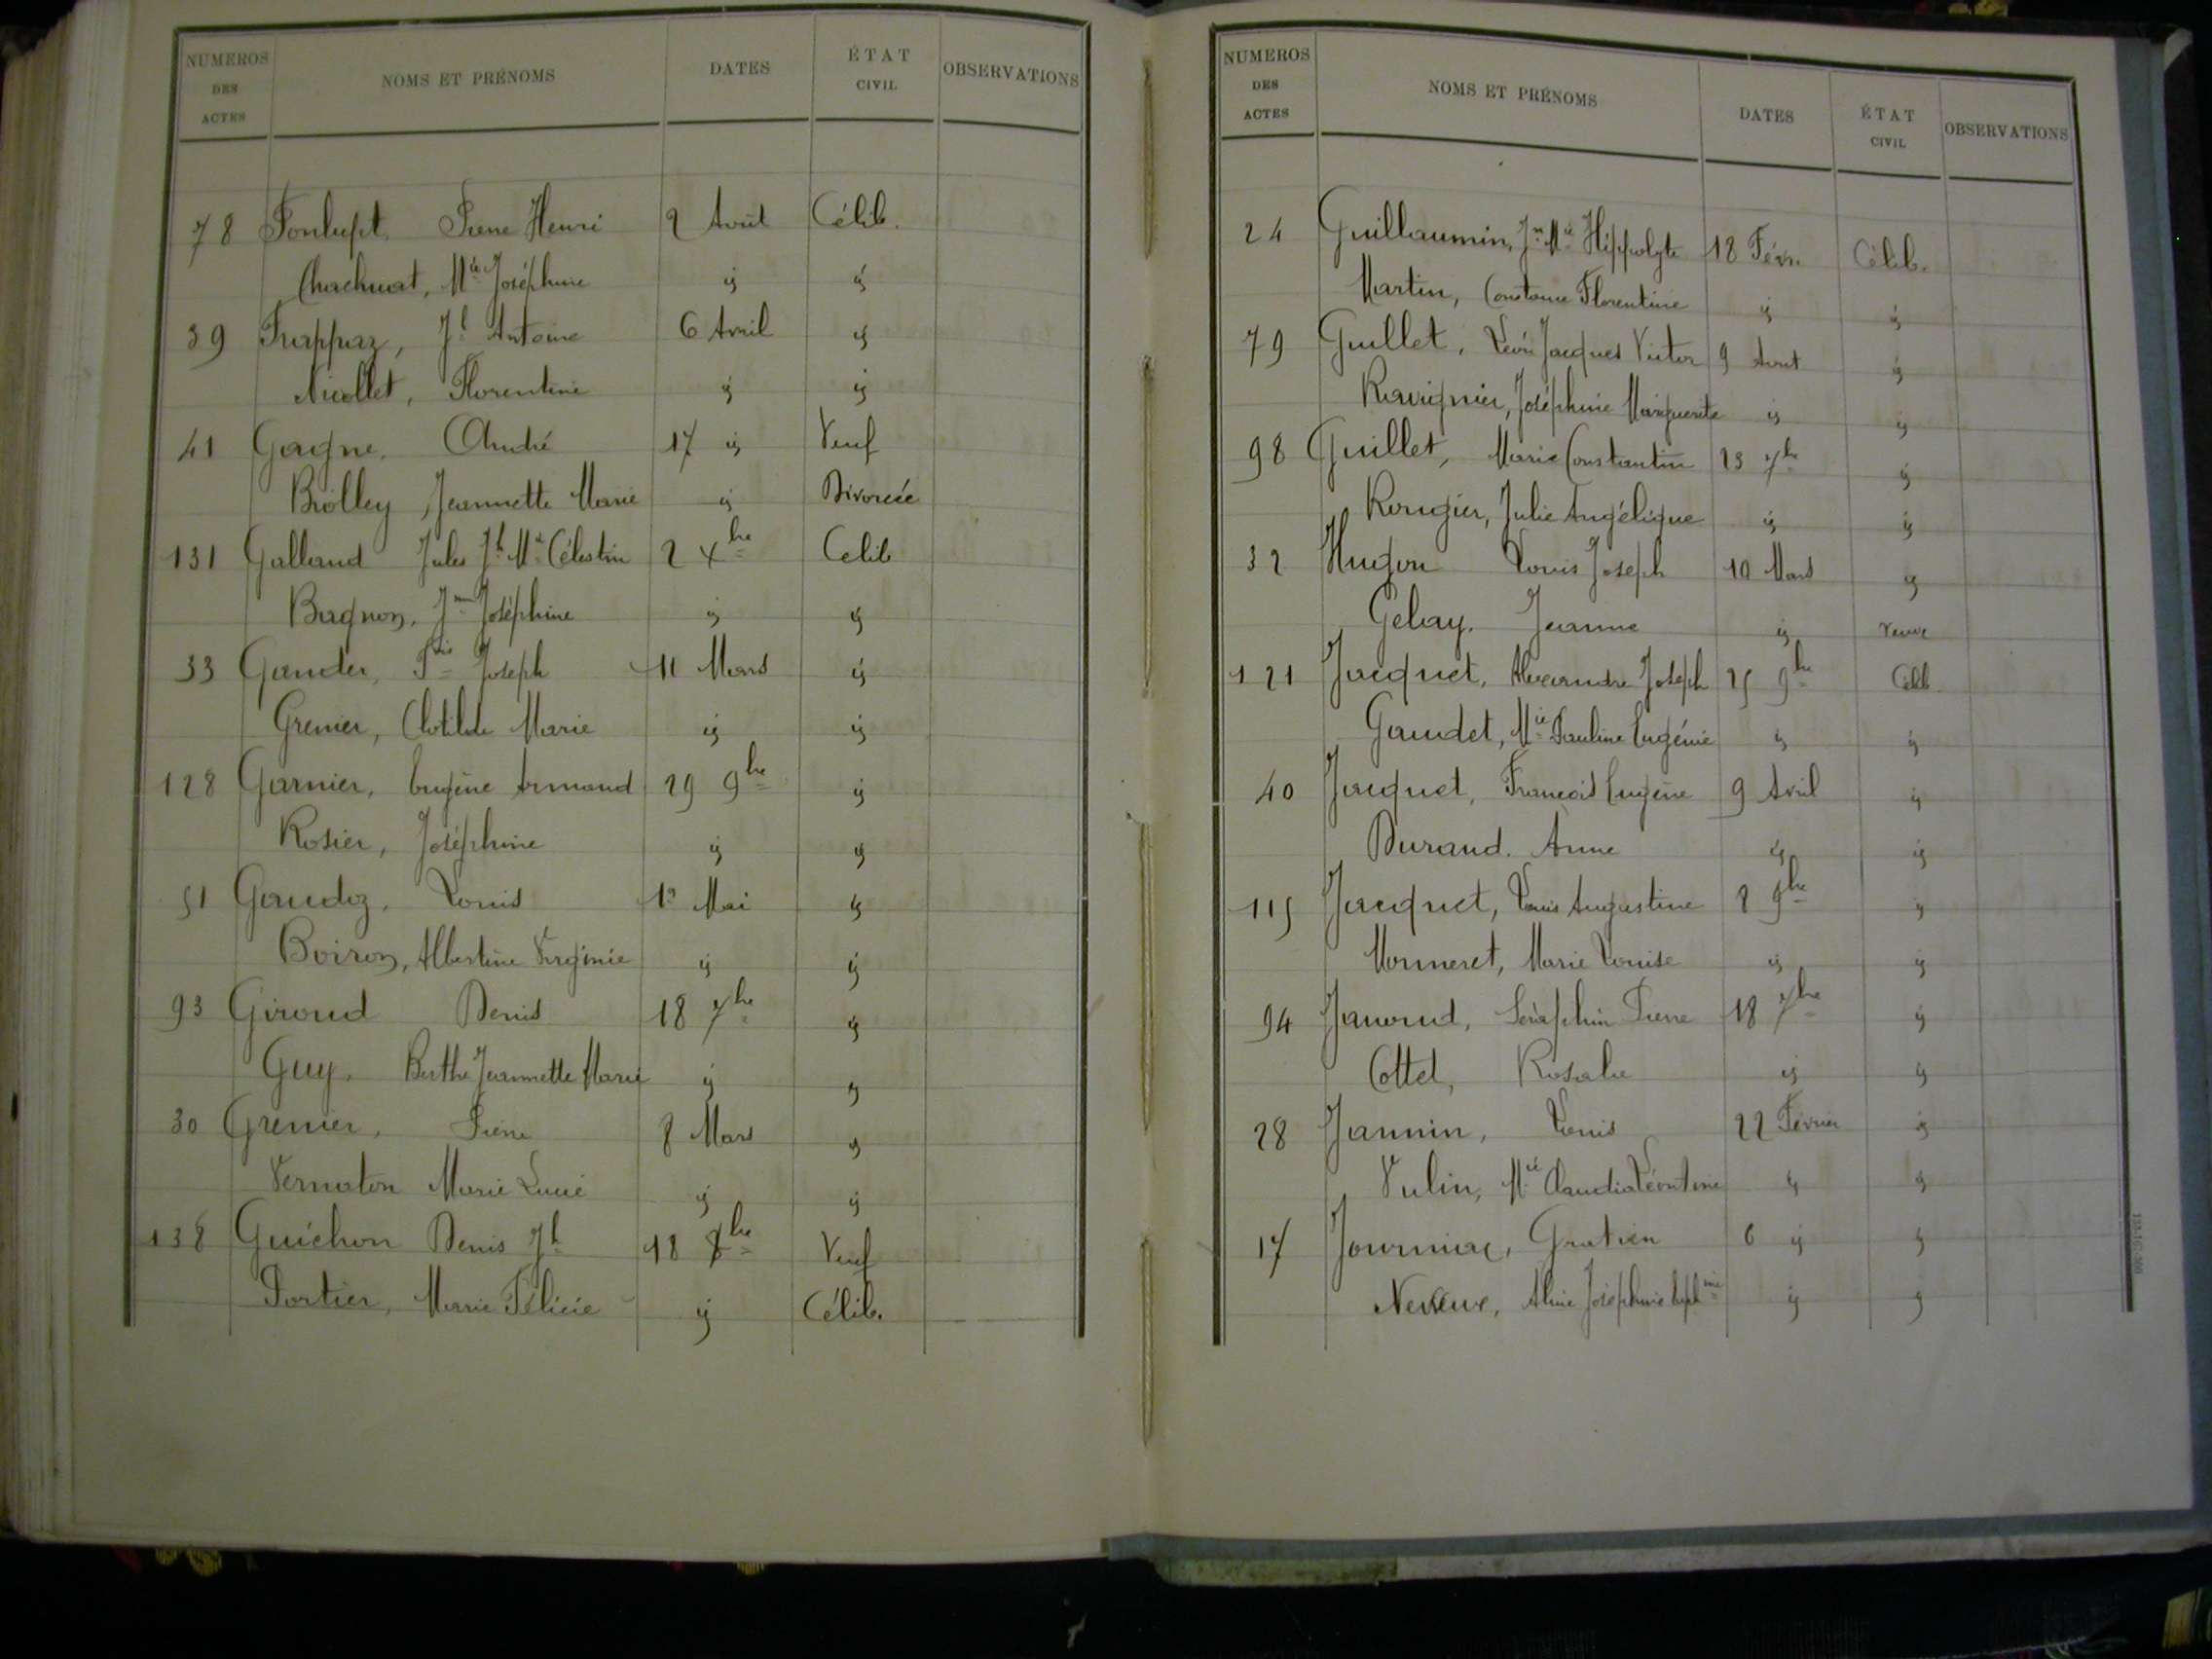 NUMEROS DES ACTES NOMS ET PRÉNOMS DATES ÉTAT CIVIL OBSERVATIONS
78 Fonlupt. Pierre Henri 2 Août Célib.
Chachuat, Mie Joséphine id id
39 Frappaz, Jh Antoine 6 Avril id
Nicollet, Florentine id id
41 Gagne. André 17 id Veuf
Brolley, Jeannette Marie id Divorcée
131 Galland Jules Jh Mie Célestin 2 Xbre Celib
Bagnon, Jne Joséphine id id
33 Gander, Fois Joseph 11 Mars id
Grenier, Clotilde Marie id id
128 Garnier, Eugène Armand 29 9bre id
Rosier, Joséphine id id
51 Gaudoz, Louis 12 Mai id
Boiron, Albertine Virginie id id
93 Giroud Denis 18 7bre id
Guy, Berthe Jeannette Marie id id
30 Grenier, Pierre 8 Mars id
Vernaton Marie Lucie id id
138 Guichon Denis Jh 18 Xbre Veuf
Portier, Marie Félicie id Célib.
NUMEROS DES ACTES NOMS ET PRÉNOMS DATES ÉTAT CIVIL OBSERVATIONS
24 Guillaumin, Jn Mie Hippolyte 18 Févr. Célib.
Martin, Constance Florentine id id
79 Guillet, Léon Jacques Victor 9 Aout id
Ravignier, Joséphine Marguerite id id
98 Guillet, Marie Constantin 23 7bre id
Rougier, Julie Angélique id id
32 Hugon Louis Joseph 10 Mars id
Gelay. Jeanne id Veuve
121 Jacquet, Alexandre Joseph 25 9bre Célib
Gaudet, Mie Pauline Eugénie id id
40 Jacquet, François Eugène 9 Avril id
Durand. Anne id id
115 Jacquet, Louis Augustine 8 9bre id
Monneret, Marie Louise id id
94 Janoud, Séraphin Pierre 18 7bre id
Cottet, Rosalie id id
28 Jannin, Louis 22 Février id
Vulin, Mie Claudia Léontine id id
17 Journiac, Gratien 6 id id
Neveux, Aline Joséphine Euphmie id id